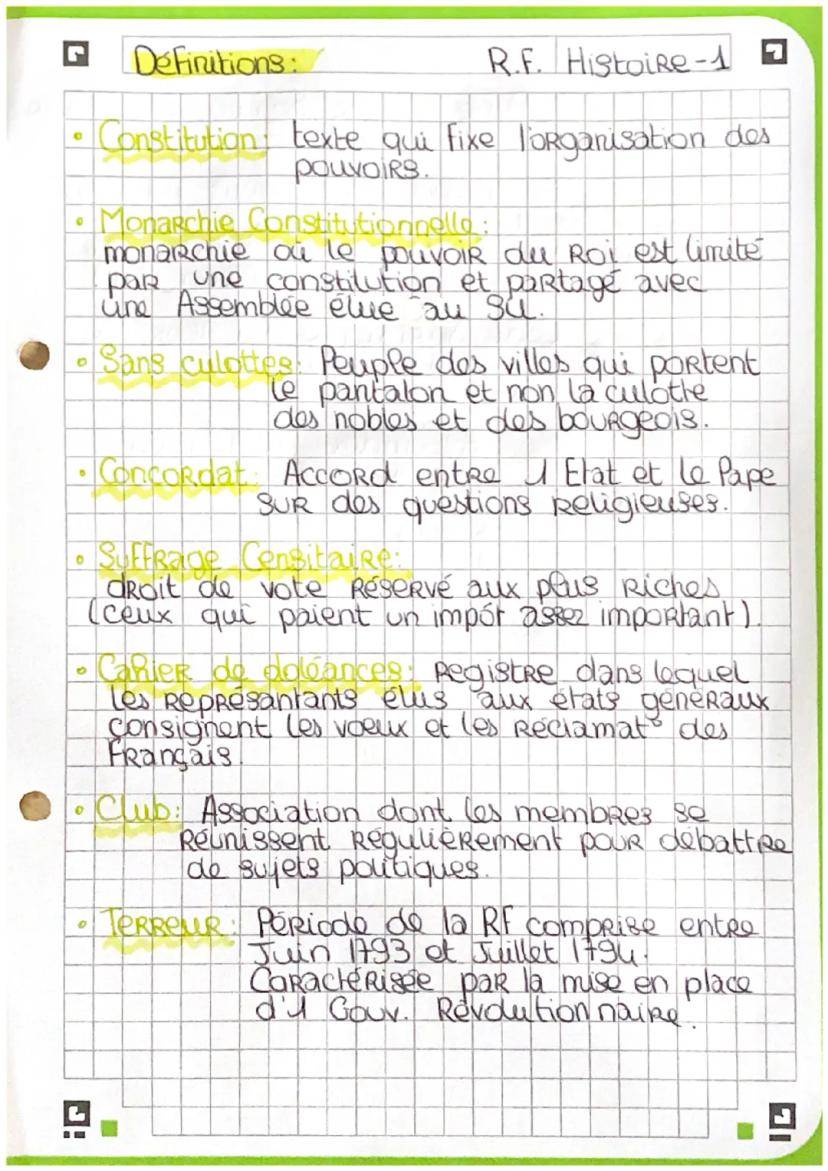 Définitions: R.F. Histoire-1
• Constitution: texte qui fixe l'organisation des
pouvoirs.
• Monarchie Constitutionnelle:
monarchie où le pouvoir du Roi est limité
par une constitution et partagé avec
une Assemblée élue au SU.
• Sans culottes: Peuple des villes qui portent
le pantalon et non la culotte
des nobles et des bourgeois.
• Concordat: Accord entre 1 Etat et le Pape
sur des questions religieuses.
• Suffrage Censitaire:
droit de vote réservé aux plus riches
(ceux qui paient un impôt assez important).
• Cahier de doléances: registre dans lequel
les représantants élus aux états généraux
consignent les voeux et les réclamat° des
Français.
• Club: Association dont les membres se
réunissent régulièrement pour débattre
de sujets politiques.
• Terreur: Période de la RF comprise entre
Juin 1793 et Juillet 1794.
Caractérisée par la mise en place
d'1 Gouv. Révolutionnaire.